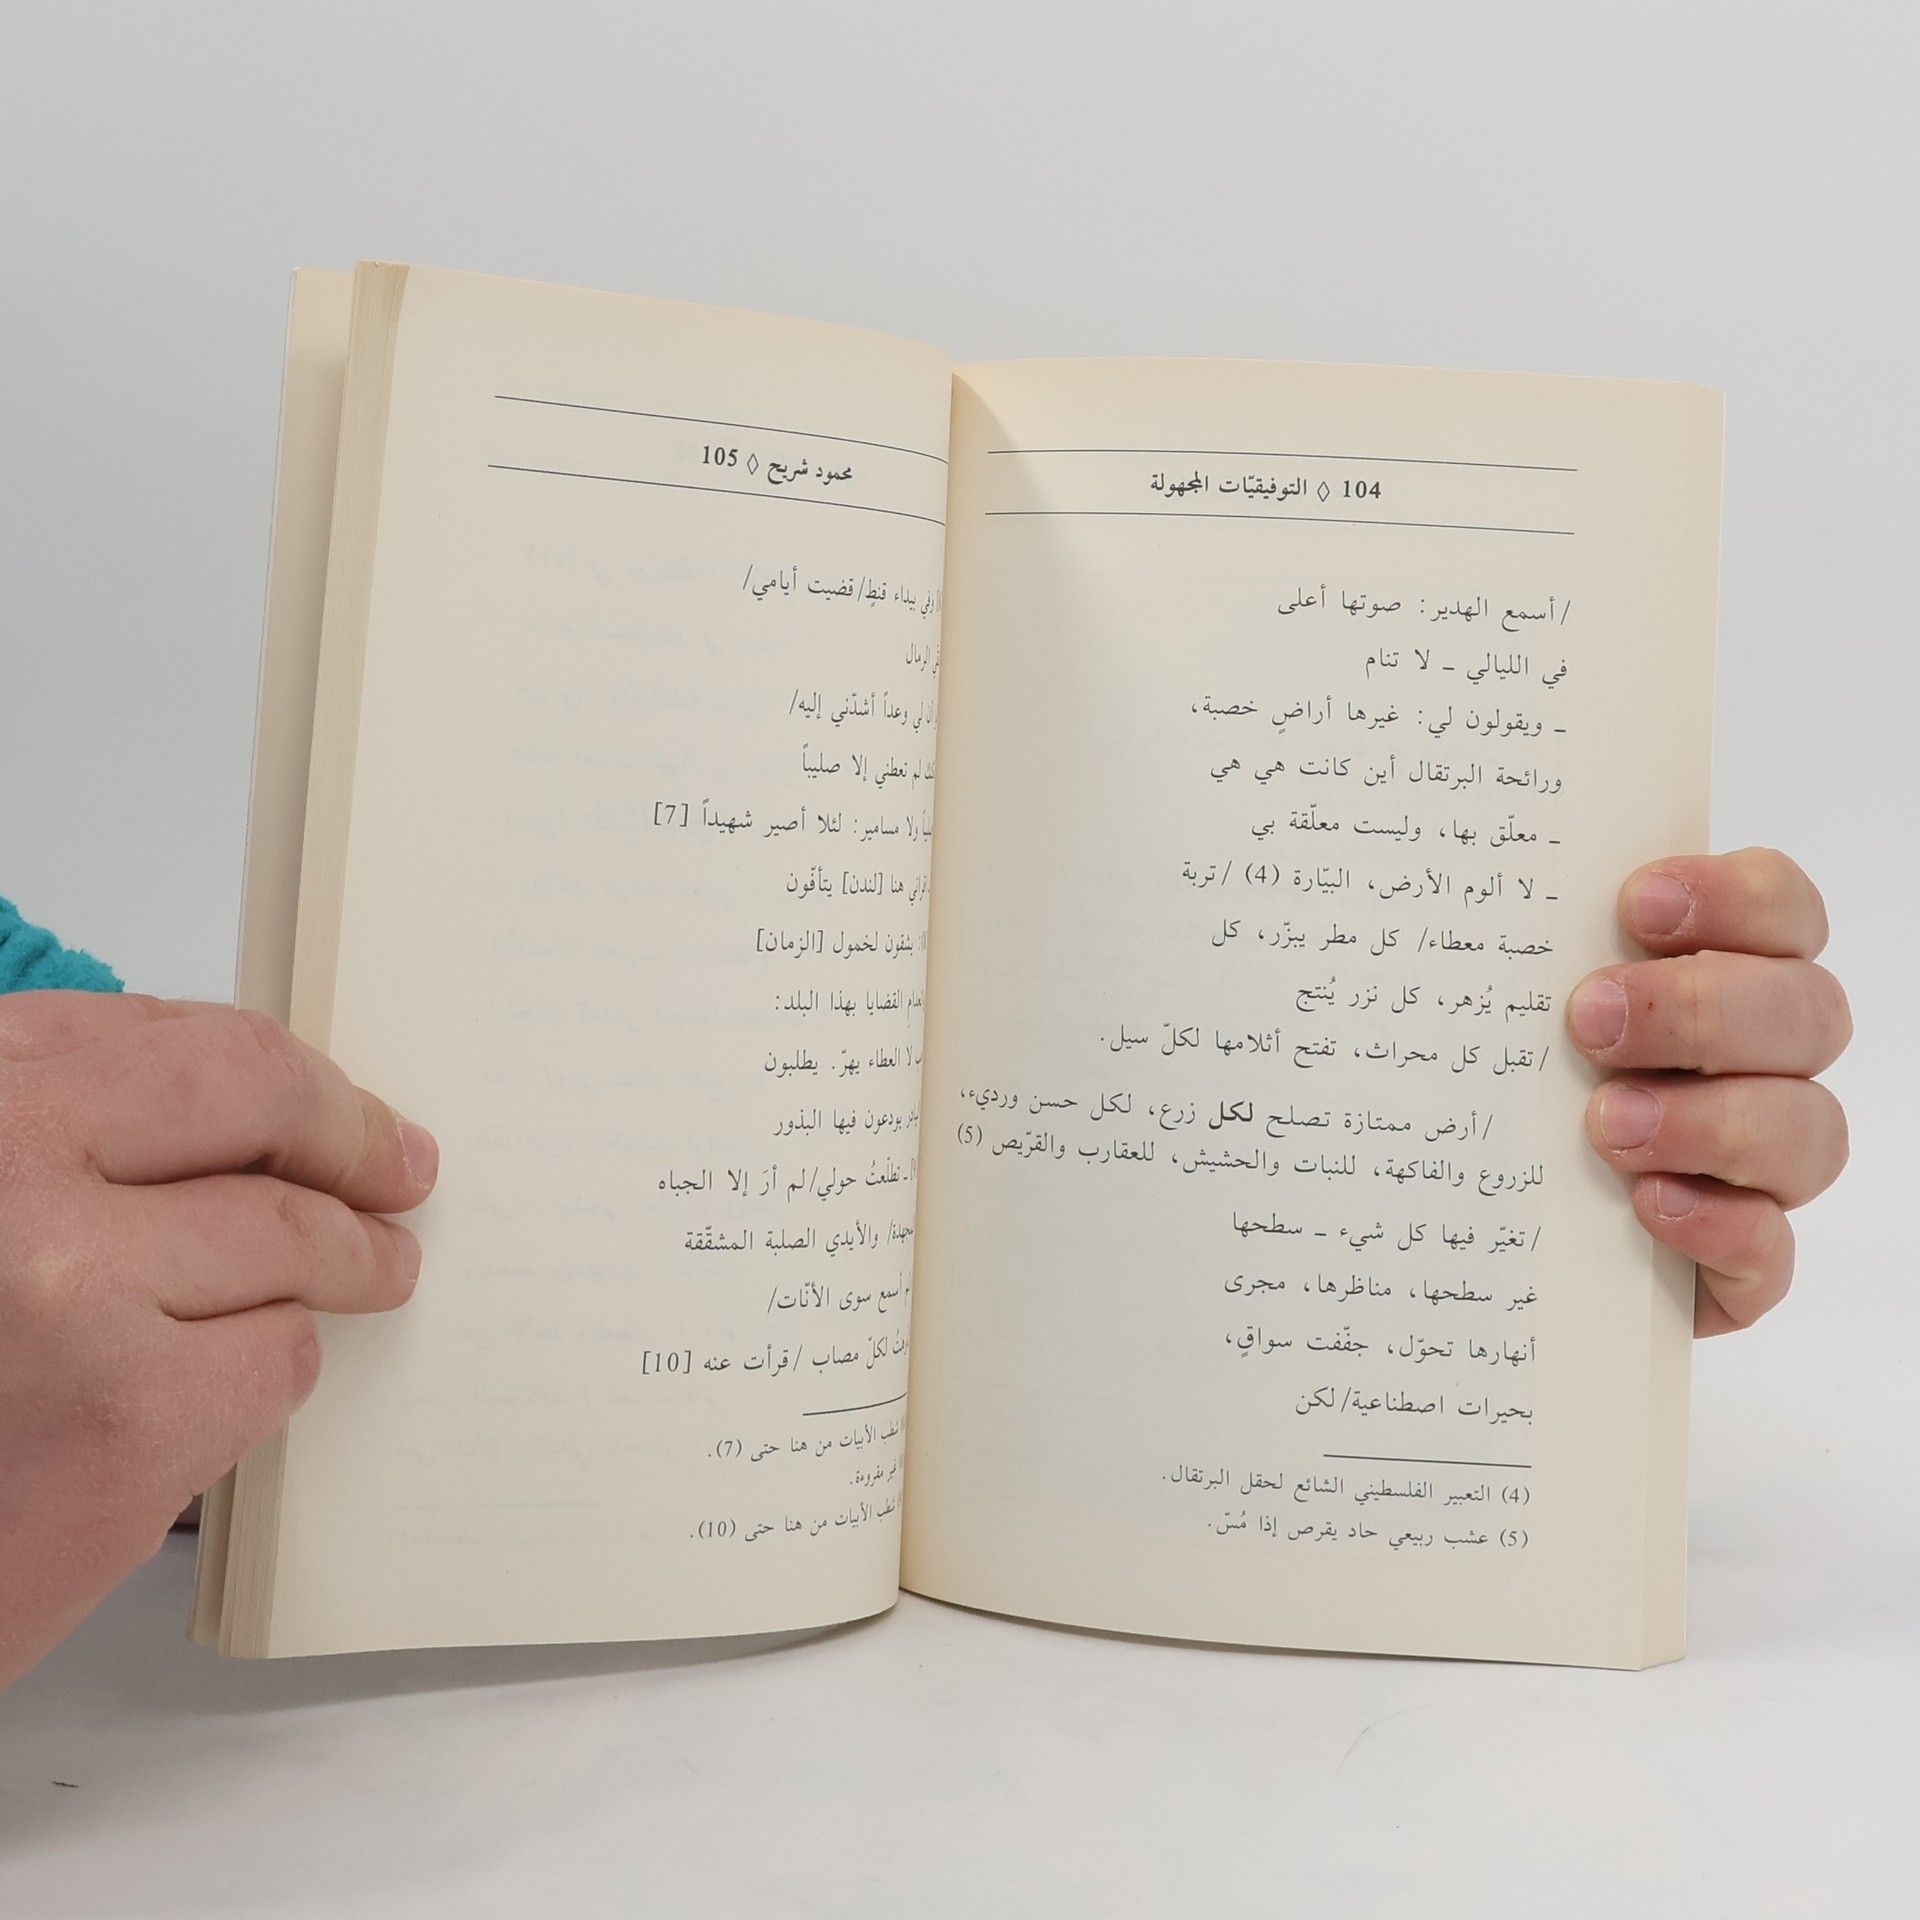 104 ◊ التوفيقيّات المجهولة
/أسمع الهدير: صوتها أعلى
في الليالي ـ لا تنام
ـ ويقولون لي: غيرها أراضٍ خصبة،
ورائحة البرتقال أين كانت هي هي
ـ معلّق بها، وليست معلّقة بي
ـ لا ألوم الأرض، البيّارة (4) /تربة
خصبة معطاء/ كل مطر يبزّر، كل
تقليم يُزهر، كل نزر يُنتج
/تقبل كل محراث، تفتح أثلامها لكلّ سيل.
/أرض ممتازة تصلح لكل زرع، لكل حسن ورديء،
للزروع والفاكهة، للنبات والحشيش، للعقارب والقرّيص (5)
/تغيّر فيها كل شيء ـ سطحها
غير سطحها، مناظرها، مجرى
أنهارها تحوّل، جفّفت سواقٍ،
بحيرات اصطناعية/لكن
(4) التعبير الفلسطيني الشائع لحقل البرتقال.
(5) عشب ربيعي حاد يقرص إذا مُسّ.
محمود شريح ◊ 105
وفي بيداء قنطٍ/قضيت أيامي/
الرمال
لي وعداً أشدّني إليه/
لم تعطني إلا صليباً
ولا مسامير: لئلا أصير شهيداً [7]
هنا [لندن] يتأفّون
يشفون لخمول [الزمان]
القضايا بهذا البلد:
لا العطاء يهرّ. يطلبون
يودعون فيها البذور
ـ تطلّعتُ حولي/لم أرَ إلا الجباه
والأيدي الصلبة المشقّقة
أسمع سوى الأنّات/
لكلّ مصاب /قرأت عنه [10]
شطب الأبيات من هنا حتى (7).
غير مقروءة.
شطب الأبيات من هنا حتى (10).